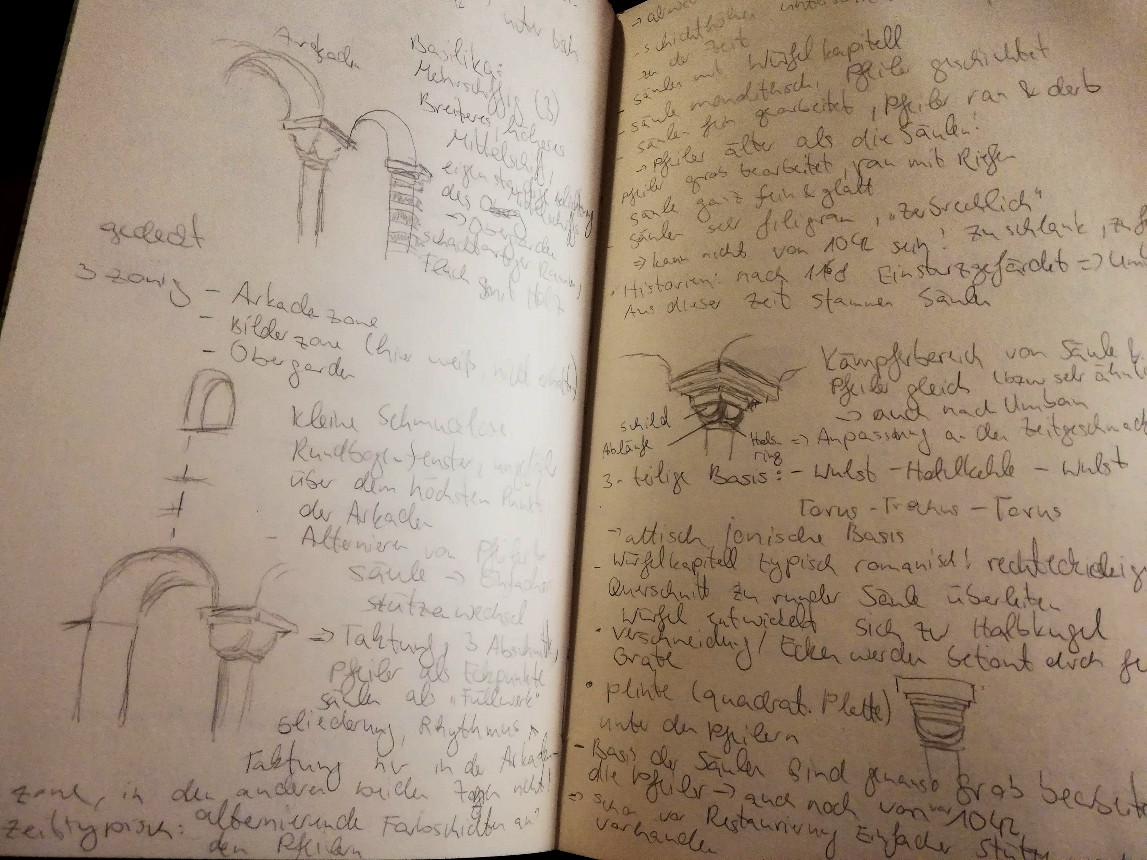 unter
Arkaden
Basilika:
Mehrschiffig (3)
Breiteres, höheres
Mittelschiff,
eigenständige
des Mittelschiffs
→ Obergarden
schachtartiger Raum,
Flach mit Holz
gedeckt
3 zonig - Arkadezone
- Bilderzone (hier weiß, nicht erhalten)
- Obergarden
kleine Schmucklose
Rundbogenfenster, ungefähr
über dem höchsten Punkt
der Arkaden
- Alternieren von Pfeiler &
Säule → Einfacher
Stützenwechsel
⇒ Taktung, 3 Abschnitte,
Pfeiler als Eckpunkte
säulen als „Füllwerk"
Gliederung, Rhythmus
Taktung nur in der Arkaden-
zone, in den anderen beiden Zonen nicht!
Zeittypisch: alternierende Farbschichten an
den Pfeilern
→
- schichthöhen
zu der Zeit
- säulen mit Würfelkapitell
- säule monolithisch, Pfeiler geschichtet
- säulen fein gearbeitet, Pfeiler rau & derb
→ Pfeiler älter als die Säulen!
Pfeiler grob bearbeitet, rau mit Riefen
- säule ganz fein & glatt
- säulen sehr filigran, „zerbrechlich"
⇒ kann nicht von 1042 sein! zu schlank, zu
• Historien: nach Einsturzgefärdet ⇒
Aus dieser Zeit stammen Säulen
Kämpferbereich von Säule &
Pfeiler gleich (bzw sehr
→ auch nach Umbau
schild
Abläufe
Hals-
ring
⇒ Anpassung an den Zeitgeschmack
3-teilige Basis: - Wulst - Hohlkehle - Wulst
Torus - Trochus - Torus
→ attisch jonische Basis
- Würfelkapitell typisch romanisch! rechteckigen
Querschnitt zu runder Säule überleiten
Würfel entwickelt sich zu Halbkugel
• Verschneidung/Ecken werden betont durch
Grate
• plinte (quadrat. Platte)
unter den Pfeilern
- Basis der Säulen sind genauso grob bearbeitet
die Pfeiler → auch noch von 1042,
⇒ schon vor Restaurierung Einfacher
vorhanden